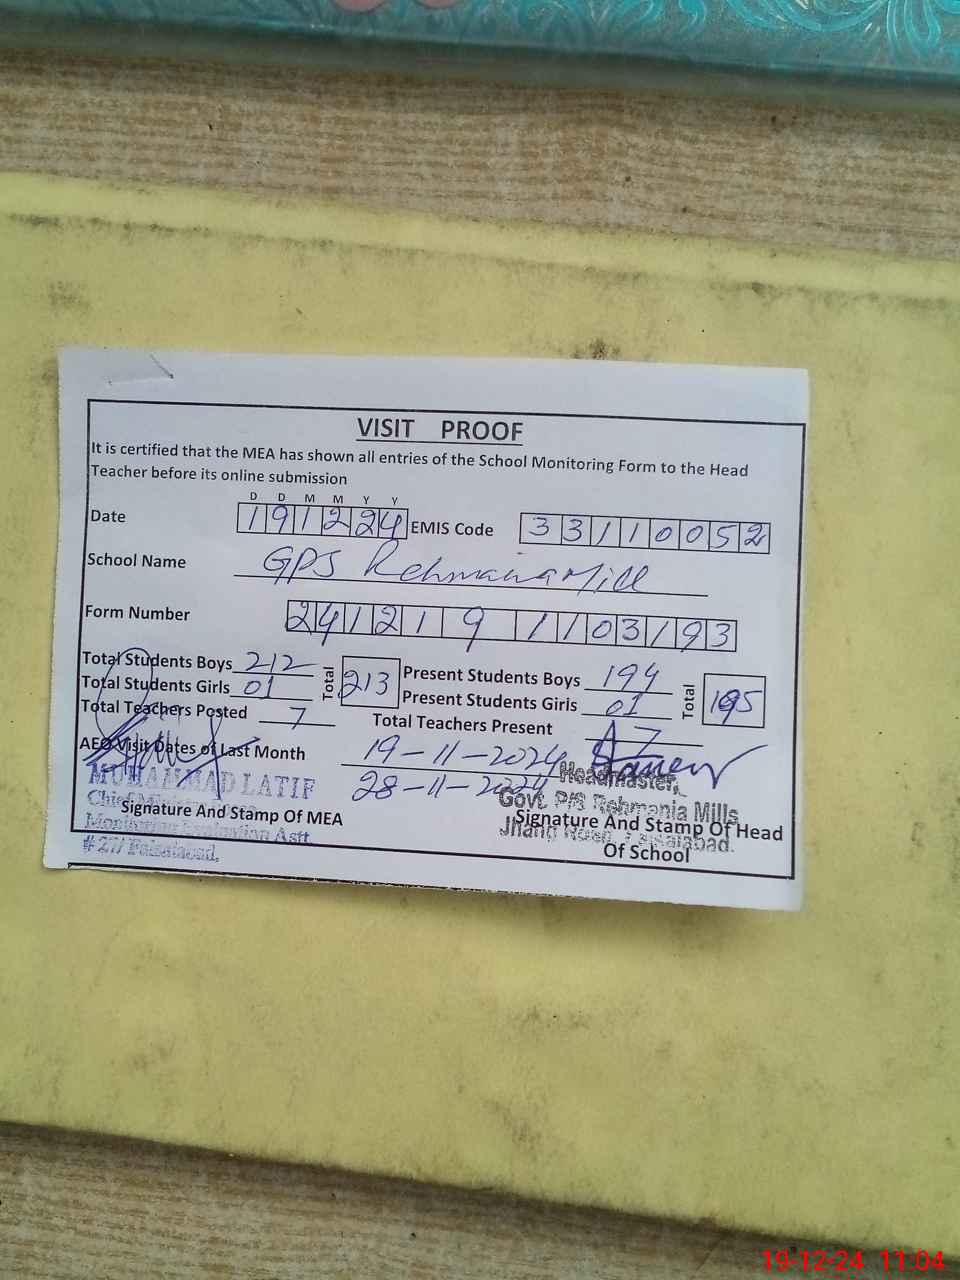 VISIT PROOF
It is certified that the MEA has shown all entries of the School Monitoring Form to the Head
Teacher before its online submission
D D M M Y Y
Date 191224 EMIS Code 33110052
School Name GPS Rehmania Mill
Form Number 24121911103193
Total Students Boys 212 Total 213 Present Students Boys 194 Total 195
Total Students Girls 01 Present Students Girls 01
Total Teachers Posted 7 Total Teachers Present 7
AEO Visit Dates of Last Month 19-11-2024
28-11-2024
MUHAMMAD LATIF
Chief Minister
Monitoring Evaluation Astt
# 27/ Faisalabad.
Signature And Stamp Of MEA
Headmaster,
Govt. P/S Rehmania Mills
Jhang Road, Faisalabad.
Signature And Stamp Of Head
Of School
19-12-24 11:04